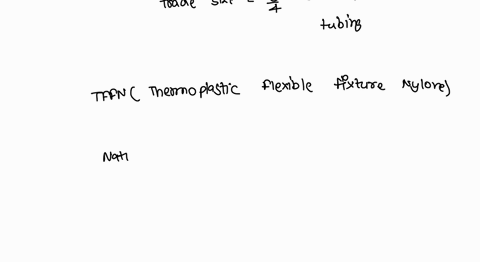 trade size = 3/4
tubing
TFFN ( Thermoplastic flexible fixture Nylone)
Nati